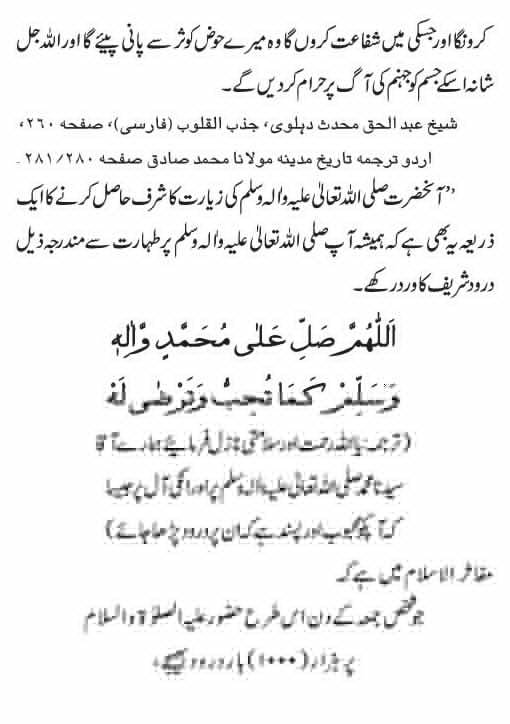 کرونگا اور جسکی میں شفاعت کروں گا وہ میرے حوض کوثر سے پانی پیئے گا اور اللہ جل
شانہ اسکے جسم کو جہنم کی آگ پر حرام کر دیں گے۔
شیخ عبد الحق محدث دہلوی، جذب القلوب (فارسی)، صفحہ ۲۶۰،
اردو ترجمہ تاریخ مدینہ مولانا محمد صادق صفحہ ۲۸۱/۲۸۰۔
”آنحضرت صلی اللہ تعالیٰ علیہ والہ وسلم کی زیارت کا شرف حاصل کرنے کا ایک
ذریعہ یہ بھی ہے کہ ہمیشہ آپ صلی اللہ تعالیٰ علیہ والہ وسلم پر طہارت سے مندرجہ ذیل
درود شریف کا ورد رکھے۔
اَللّٰهُمَّ صَلِّ عَلٰی مُحَمَّدٍ وَّاٰلِهٖ
وَسَلِّمْ كَمَا تُحِبُّ وَتَرْضٰی لَهٗ
(ترجمہ: یا اللہ رحمت اور سلامتی نازل فرمایئے ہمارے آقا
سیدنا محمد صلی اللہ تعالیٰ علیہ والہ وسلم پر اور انکی آل پر جیسا
کہ آپکو محبوب اور پسند ہے کہ ان پر درود پڑھا جائے)
مفاخر الاسلام میں ہے کہ
جو شخص جمعہ کے دن اس طرح حضور علیہ الصلوٰۃ والسلام
پر ہزار (۱۰۰۰) بار درود بھیجے،